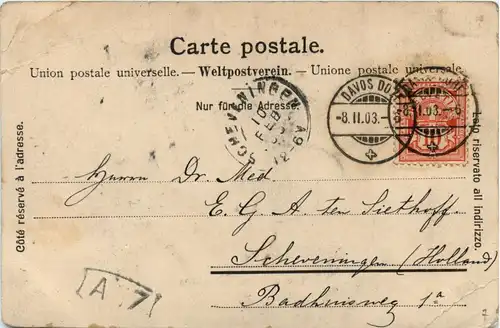 Carte postale.
Union postale universelle. — Weltpostverein. — Unione postale universale.
Nur für die Adresse.
Côté réservé à l'adresse.
Lato riservato all indirizzo.
SCHEVENINGEN
10
FEB
DAVOS DO
-8.II.03.-
Herrn Dr. Med
E. G. A ten Siethoff.
Scheveningen (Holland)
Badhuisweg 1a
A 7